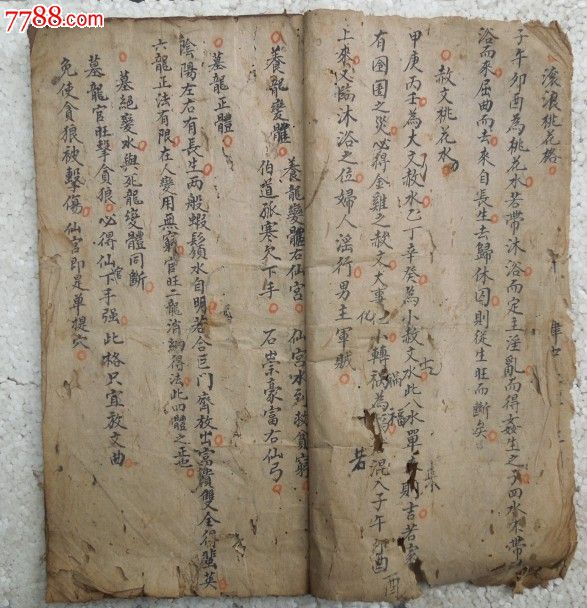 7788.com
滚浪桃花格
子午卯酉為桃花水若帶沐浴而定主淫亂而得姦生之子四水不帶
浴而來屈曲而去來自長生去歸休囚則從生旺而斷矣
赦文桃花水
甲庚丙壬為大文赦水乙丁辛癸為小赦文水此八水單則吉若家
有囹圄之災必得金雞之赦文大事化小轉禍為福混入子午卯酉
上來又臨沐浴之位婦人淫行男主軍賊 若
養龍變體 養龍變體右仙宮 仙宮水到敗貪窮
伯道孤寒欠下手 石崇豪富右仙弓
墓龍正體
陰陽左右有長生兩般蝦鬚水自明若合巨門齊放出富貴雙全得蜚英
六龍正法有限在人變用無窮官旺二龍消納得法此四體之正也
墓絕變水與死龍變體同斷
墓龍官旺擊貪狼必得仙下手强此格只宜放文曲
免使貪狼被擊傷仙宮即是單提穴